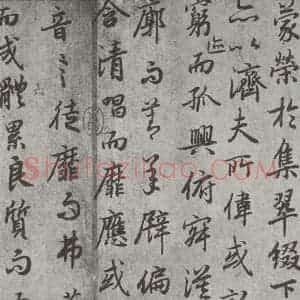 蒙榮於集翠綴下
亦以濟夫所偉或
窮迹而孤興俯寂漠
廓而莫承譬偏
含清唱而靡應或
音言徒靡而弗
而成體累良質而